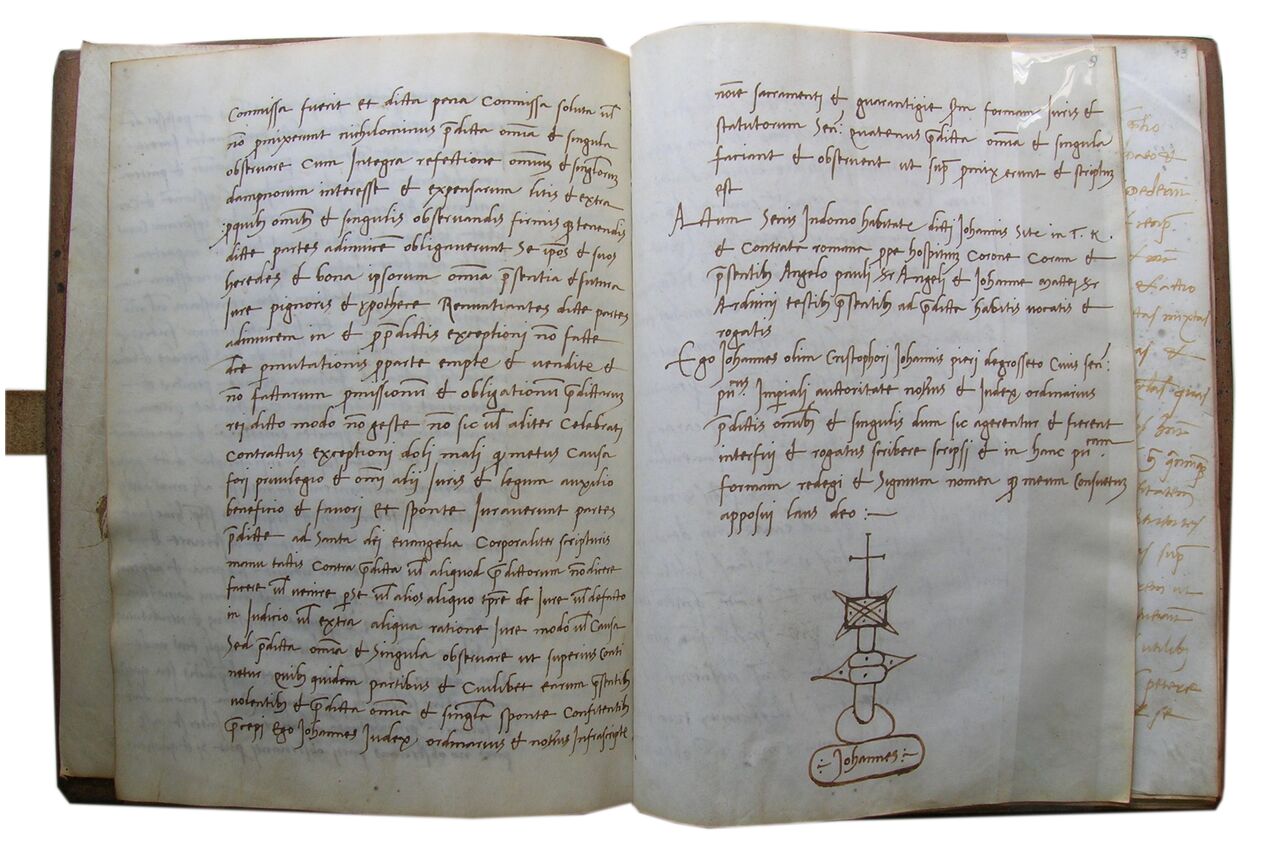 Commissa fuerit et dicta pena Commissa soluta ul
nō pmixerunt nichilominus p̄dicta om̄ia & singula
observare Cum Integra refectione om̄ium & singlorum
dampnorum interesse & expensarum litis & extra
pquib omīb & singulis observandis firmis tenendis
dicte partes adinuicem obligauerunt Se ip̄os & suos
heredes & bona ipsorum omnia p̄sentia & futura
Iure pignoris & ypothece Renuntiantes dicte partes
adinuicem in & p̄dictis exceptioni nō facte
dc̄e pmutationis pparte empte & vendite &
nō factarum pmissionum & obligationum p̄dictarum
rei dicto modo nō geste nō sic ul aliter Celebrati
Contractus exceptioni doli mali metus Causa
fori privilegio & omī alii Iuris & legum auxilio
benefitio & favori Et sponte Iuraverunt partes
p̄dicte ad Santa dei evangelia Corporaliter scripturis
manu tactis Contra p̄dicta ul aliquod p̄dictorum nō dicere
facere ul venire p se ul alios aliquo tp̄re de Iure ul defacto
in Iudicio ul extra aliqua ratione Iure modo ul Causa
Sed p̄dicta om̄ia & Singula observare ut superius Conti
netur Quib quidem partibus & Cuilibet earum p̄sentib
volentib & p̄dicta om̄ia & singla sponte Confitentib
p̄cepi Ego Johannes Iudex ordinarius & notrius Infrascript
9
noīe sacramenti & guarantigie formam iuris &
statutorum Seń. quatenus p̄dicta om̄ia & singula
faciant & observent ut sup̄ pmixerunt & scriptum
est
Actum Senis Indomo habitate dicti Johannis Site in T. R.
& Contrata romane ppe hospitum Corone Coram &
p̄sentib Angelo pauli Sr Angeli & Johanne mattei Sr
Arduini testib p̄sentib ad p̄dicta habitis vocatis &
rogatis
Ego Johannes olim Cristophori Johannis pieri degrosseto Civis seń.
Imperiali autoritate notrius & Iudex ordinarius
p̄dictis omīb & singulis dum sic agerentur & fierent
interfui & rogatus scribere scripsi & in hanc
formam redegi & Signum nomen meum Consuetum
apposui laus deo :—
Johannes
13